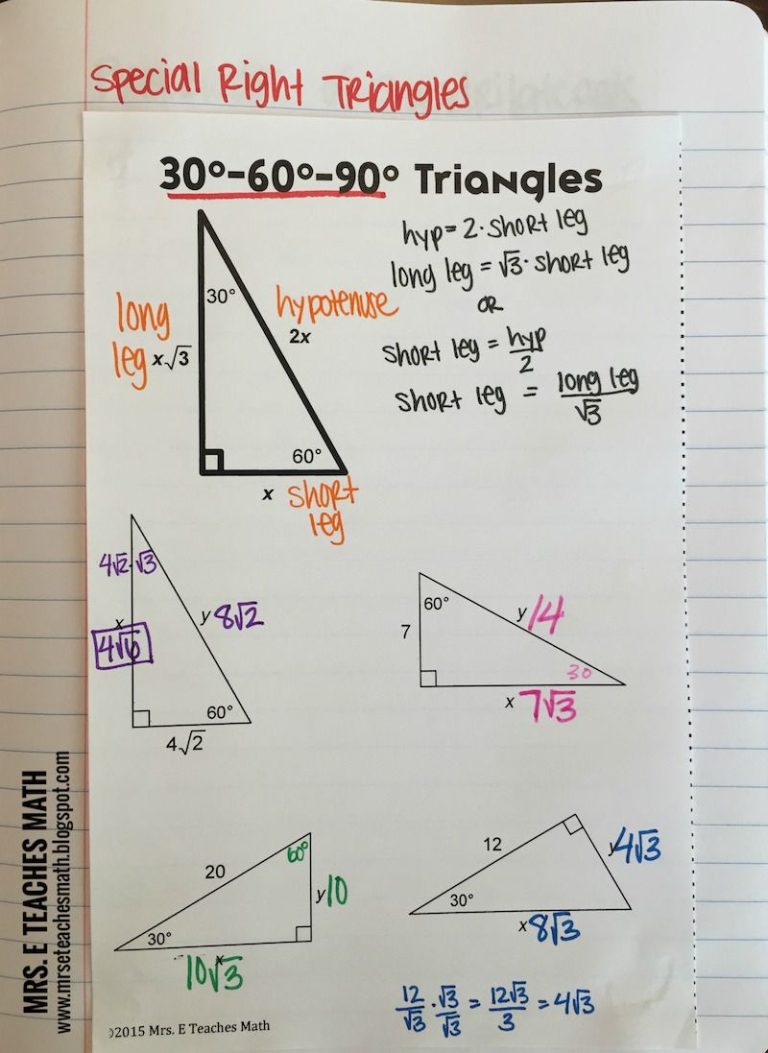 Special Right Triangles
30°-60°-90° Triangles
hyp = 2·short leg
long leg = √3·short leg
OR
short leg = hyp/2
short leg = long leg/√3
30°
long
leg
x√3
hypotenuse
2x
60°
x
short
leg
4√2·√3
x
4√6
y 8√2
60°
4√2
60°
7
y 14
30
x 7√3
20
60°
y 10
30°
x
10√3
12
y 4√3
30°
x 8√3
12/√3 · √3/√3 = 12√3/3 = 4√3
©2015 Mrs. E Teaches Math
MRS. E TEACHES MATH
www.mrseteachesmath.blogspot.com